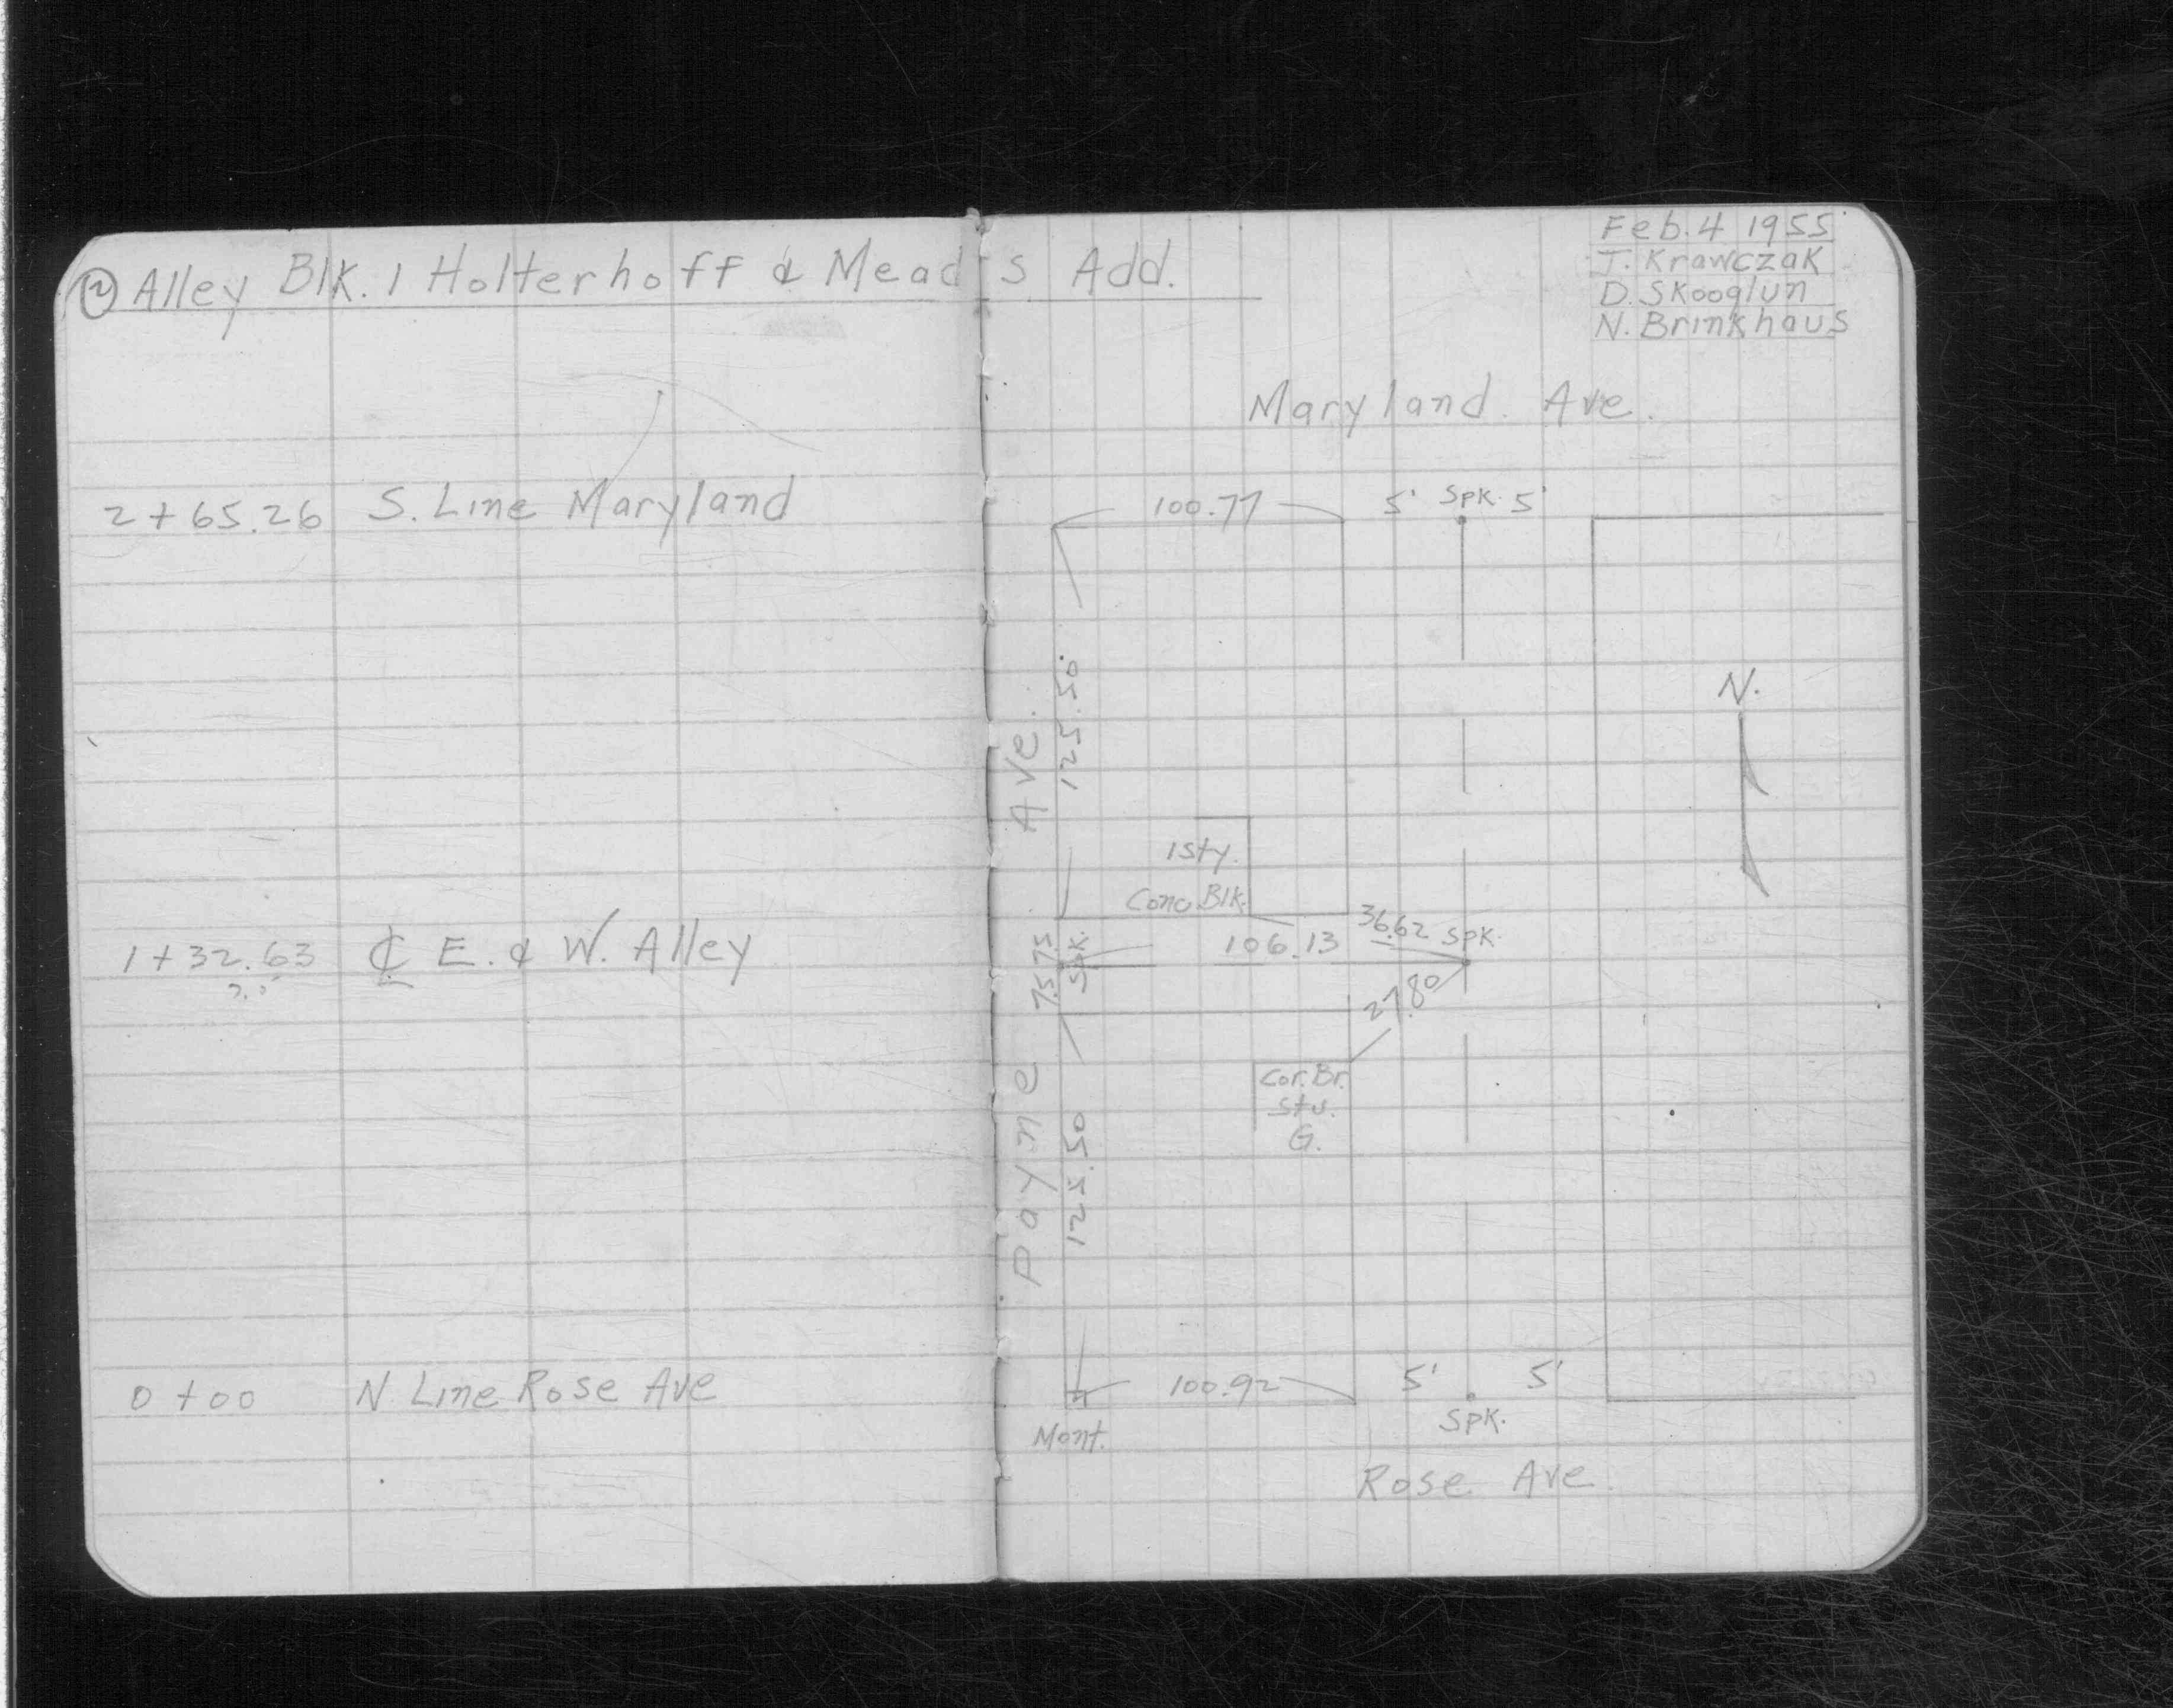 ② Alley Blk. 1 Holterhoff & Mead's Add.
2+65.26 S. Line Maryland
1+32.63 ℄ E. & W. Alley
0+00 N Line Rose Ave
Feb. 4 1955
J. Krawczak
D. Skooglun
N. Brinkhaus
Maryland Ave.
100.77 5' Spk. 5'
N.
Payne Ave.
125.50
1 sty.
Conc. Blk.
36.62 Spk.
106.13
7.5 7.5
Spk.
27.80
Cor. Br.
Stu.
G.
125.50
100.92 5' 5'
Spk.
Mont.
Rose Ave.